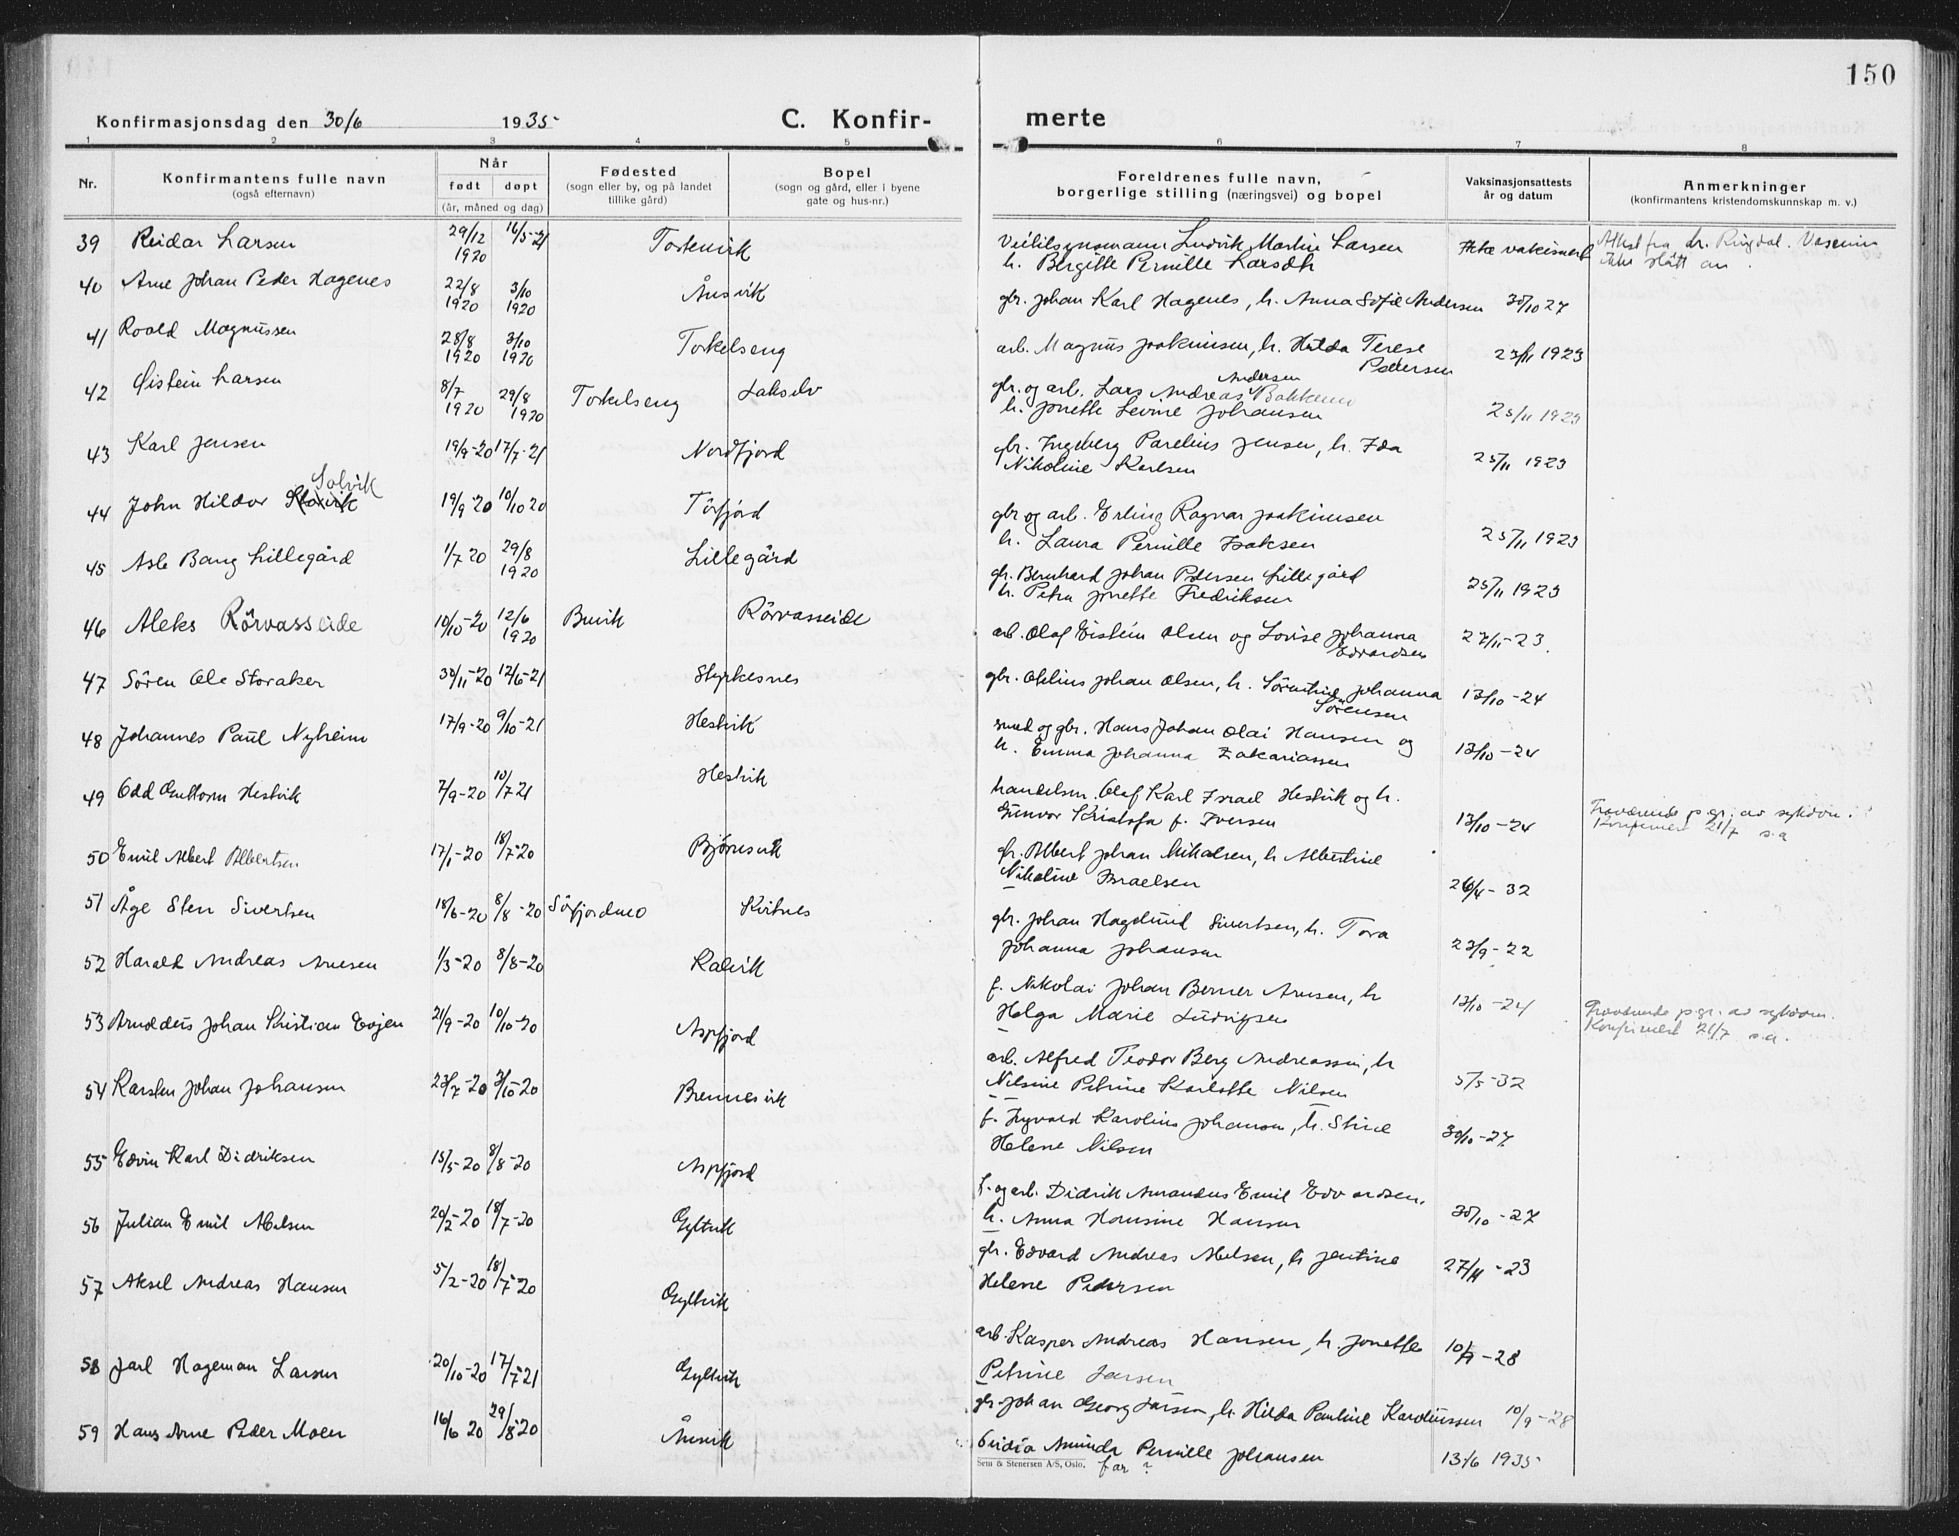 150
Konfirmasjonsdag den 30/6 1935
C. Konfir-
merte
1 2 3 4 5 6 7 8
Nr.
Konfirmantens fulle navn
(også efternavn)
Når
født døpt
(år, måned og dag)
Fødested
(sogn eller by, og på landet
tillike gård)
Bopel
(sogn og gård, eller i byene
gate og hus-nr.)
Foreldrenes fulle navn,
borgerlige stilling (næringsvei) og bopel
Vaksinasjonsattests
år og datum
Anmerkninger
(konfirmantens kristendomskunnskap m. v.)
39 Reidar Larsen 29/12 1920 16/5-21 Torkenvik
Ludvik Martin Larsen
h. Bergitte Pernille Larsdtr
Ikke vaksinert
Attest fra dr. Ringdal. Vaccinen
ikke slått an.
40 Arne Johan Peder Hagenes 22/8 1920 3/10 1920 Ånsvik
gbr. Johan Karl Hagenes, h. Anna Sofie Andersen 30/10 27
41 Roald Magnussen 28/8 1920 3/10 1920 Torkelseng
arb. Magnus Joakimsen, h. Hilda Terese
Pedersen
23/11 1923
42 Øistein Larsen 8/7 1920 29/8 1920 Torkelseng Lakselv
Andersen
gbr. og arb. Lars Andreas Bakken
h. Jonette Levine Johansen
25/11 1923
43 Karl Jensen 19/9-20 17/7-21 Nordfjord
br. Ingeberg Parelius Jensen, h. Ida
Nikoline Karlsen
25/11 1923
Solvik
44 John Hildor Storvik 19/9 20 10/10 20 Tørfjord
gbr og arb. Erling Ragnar Joakimsen
h. Laura Pernille Isaksen
25/11 1923
45 Asle Bang Lillegård 1/7 20 29/8 1920 Lillegård
gbr. Bernhard Johan Pedersen Lillegård
h. Petra Jonette Fredriksen
25/11 1923
46 Aleks Rörvasseide 10/10-20 12/6 1920 Buvik Rörvasseide
arb. Olaf Eistein Olsen og Lovise Johanna
Edvardsen
27/11-23.
47 Sören Ole Storaker 30/11-20 12/6-21 Styrkesnes
gbr. Ohlius Johan Olsen, h. Sörentine Johanna
Sörensen
13/10-24
48 Johannes Paul Nyheim 17/9-20 9/10-21 Hestvik
smed og gbr. Hans Johan Olai Hansen og
h. Emma Johanna Zakariassen
13/10-24
49 Odd Guttorm Hestvik 7/9-20 10/7 21 Hestvik
handelsm. Olaf Karl Israel Hestvik og h.
Gunvor Kristofa f. Iversen
13/10-24
Fraværende p.gr. av sykdom.
Konfirmert 21/7 s.a
50 Emil Albert Albertsen 17/1-20 18/7-20 Bjørnsvik
fr. Albert Johan Mikalsen, h Albertine
Nikoline Israelsen
26/4-32
51 Åge Sten Sivertsen 18/6-20 8/8-20 Sörfjordmo Kvitnes
gbr. Johan Hagelund Sivertsen, h. Tora
Johanna Johansen
23/9-22
52 Harald Andreas Arnesen 1/3-20 8/8-20 Kalvik
f. Nikolai Johan Berner Arnesen, h
Helga Marie Ludvigsen
13/10-24
53 Arnoldus Johan Kristian Evjen 21/9-20 10/10-20 Aspfjord
arb. Alfred Teodor Berg Andreassen, h
Nilsine Petrine Karlotte Nilsen
5/5-32
Fraværende p.gr. av sykdom.
Konfirmert 21/7 s.a.
54 Karsten Johan Johansen 23/7-20 3/10-20 Brennesvik
f. Ingvald Karolius Johansen, h. Stine
Helene Nilsen
30/10-27
55 Edvin Karl Didriksen 15/5-20 8/8-20 Aspfjord
f. og arb. Didrik Amandus Emil Edvardsen,
h. Anna Hansine Hansen
30/10-27
56 Julian Emil Abelsen 20/2-20 18/7-20 Gyltvik
gbr. Edvard Andreas Abelsen, h Jentine
Helene Pedersen
27/11-23
57 Aksel Andreas Hansen 5/2-20 18/7-20 Gyltvik
arb. Kasper Andreas Hansen, h. Jonette
Petrine Larsen
10/9-28
58 Jarl Hageman Larsen 20/10-20 17/7-21 Gyltvik
gbr. Johan Georg Larsen, h. Hilda Pauline Karoliussen 10/9-28
59 Hans Arne Peder Moen 16/6 20 29/8-20 Ånsvik
Ovidia Aminda Pernille Johansen
far ?
13/6 1935
Sem & Stenersen A/S, Oslo.